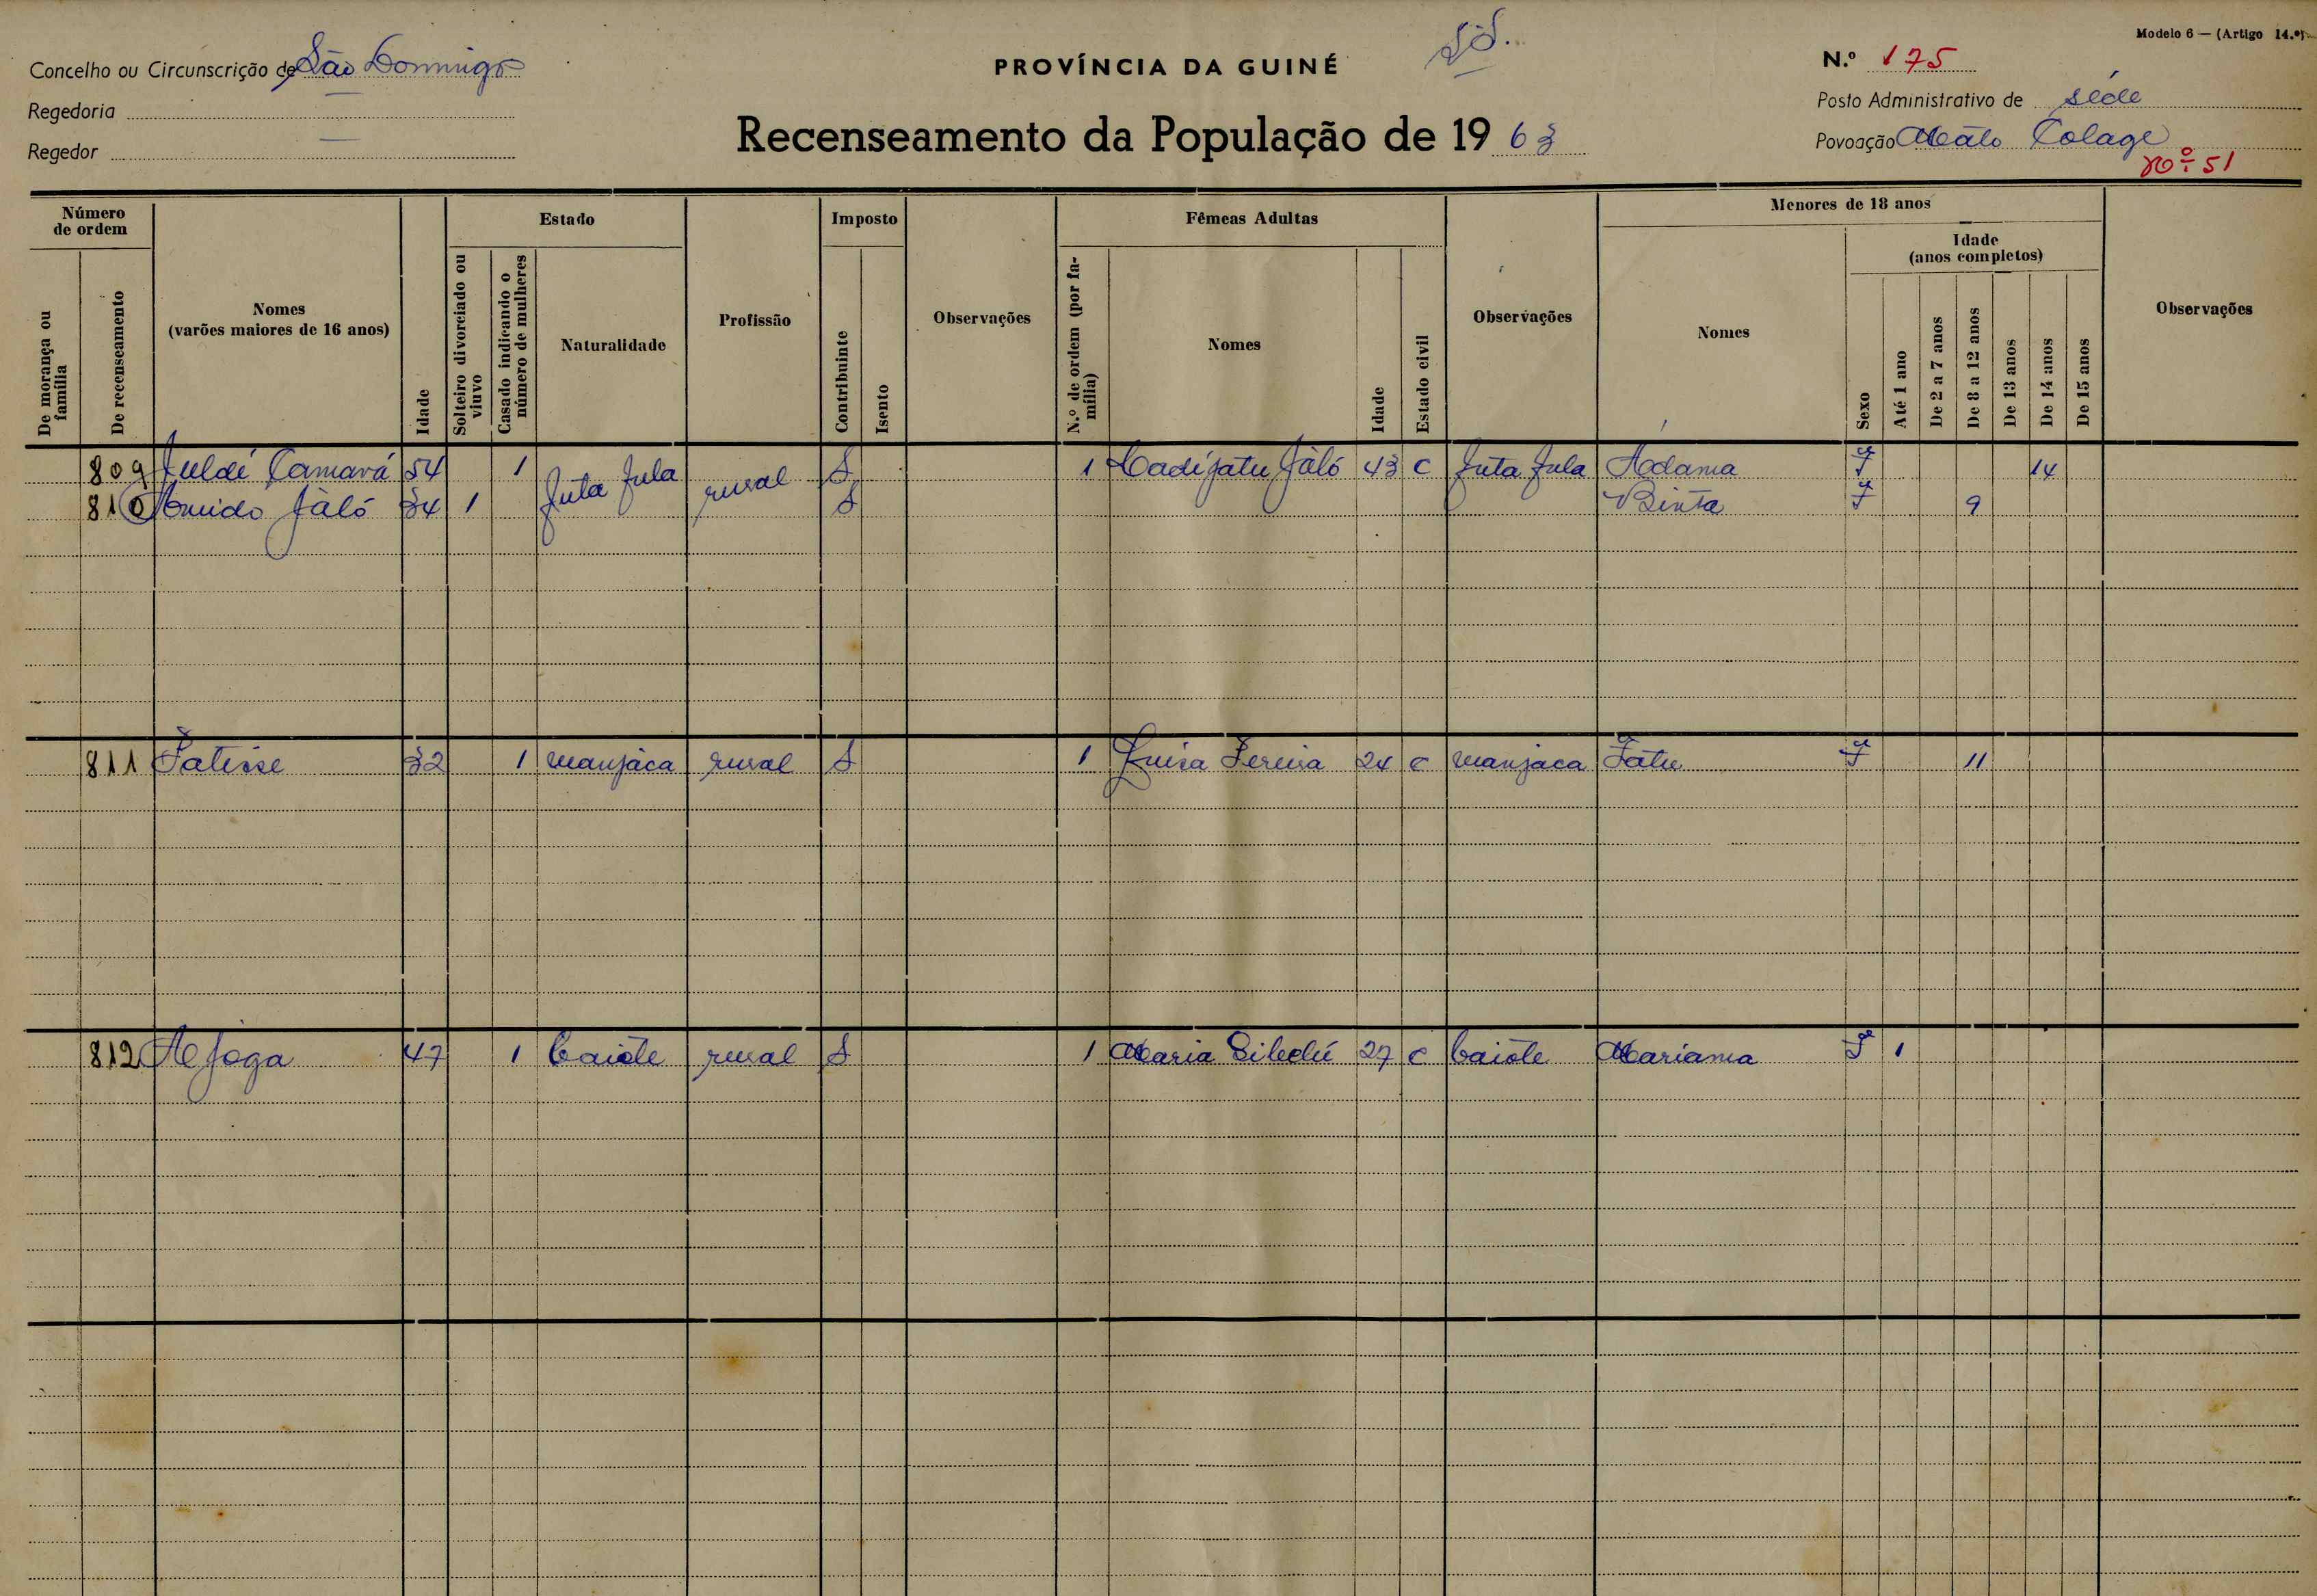 Modelo 6 — (Artigo 14.º)
Concelho ou Circunscrição de São Domingo
PROVÍNCIA DA GUINÉ
N.º 175
Regedoria
Posto Administrativo de séde
Recenseamento da População de 1963
Regedor —
Povoação Mato
Nº 51
Número de ordem
Estado
Imposto
Fêmeas Adultas
Menores de 18 anos
Idade (anos completos)
De morança ou família
De recenseamento
Nomes (varões maiores de 16 anos)
Idade
Solteiro divorciado ou viuvo
Casado indicando o número de mulheres
Naturalidade
Profissão
Contribuinte
Isento
Observações
N.º de ordem (por família)
Nomes
Idade
Estado civil
Observações
Nomes
Sexo
Até 1 ano
De 2 a 7 anos
De 8 a 12 anos
De 13 anos
De 14 anos
De 15 anos
Observações
809 Juldé Camará 54 1 futa fula rural S 1 Cadijatu Jaló 43 C futa fula Adama F 14
810 Jaló 34 1 S Binta F 9
811 32 1 manjaca rural S 1 Luisa Pereira 24 C manjaca Fatu F 11
812 Ajoga 47 1 baiote rural S 1 Maria 27 C baiote Mariama F 1